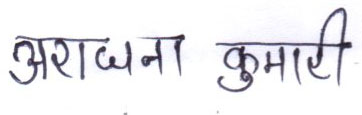 अराधना कुमारी